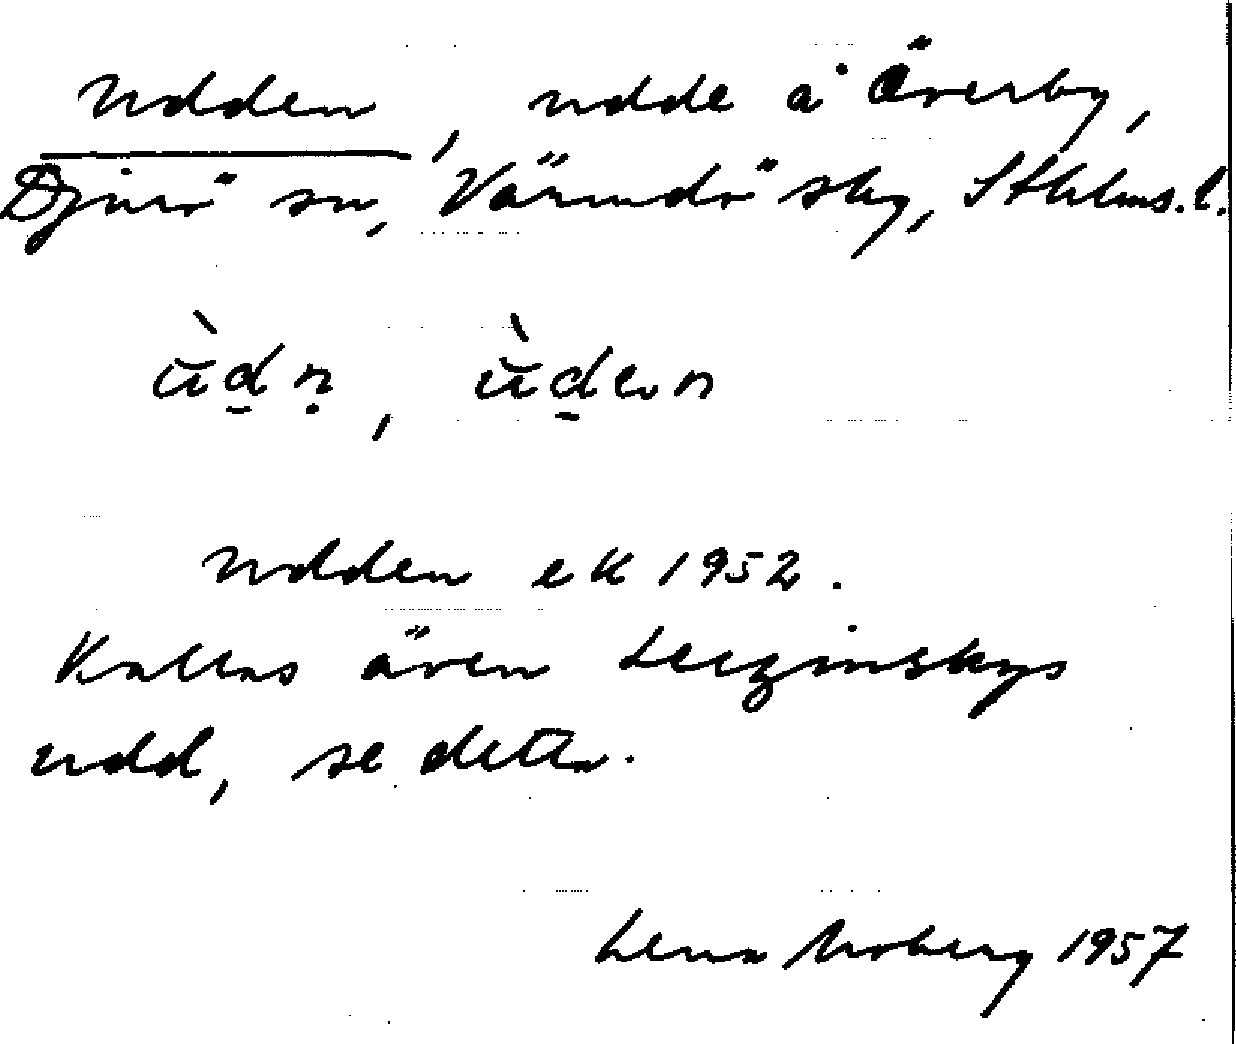 Udden, udde å Överby,
Djurö sn, Värmdö skg, Sthlms. l.
ù̄d̠ṇ, ù̄d̠en
Udden ek 1952.
Kallas även Leczinskys
udd, se detta.
Lena Moberg 1957